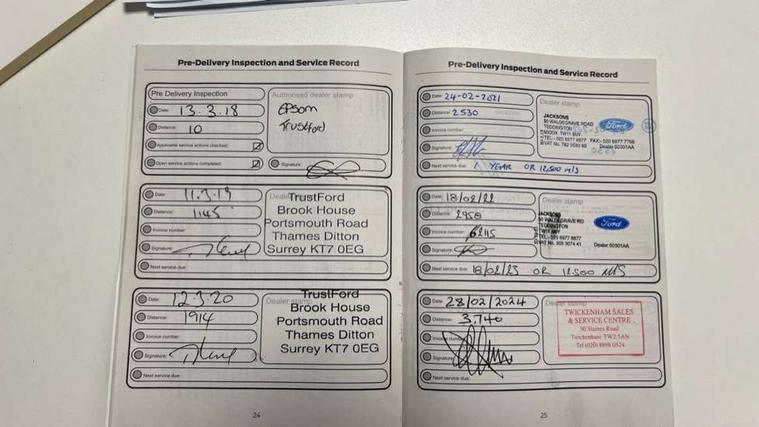 Pre-Delivery Inspection and Service Record
Pre Delivery Inspection
Authorised dealer stamp
Date: 13.3.18
EPSOM
Distance: 10
Trustford
Applicable service actions checked:
Open service actions completed:
Signature:
Date: 11.3.19
Distance: 1145
Invoice number:
Signature:
Next service due:
TrustFord
Brook House
Portsmouth Road
Thames Ditton
Surrey KT7 0EG
Date: 12.3.20
Distance: 1914
Invoice number:
Signature:
Next service due:
Dealer stamp
TrustFord
Brook House
Portsmouth Road
Thames Ditton
Surrey KT7 0EG
24
Pre-Delivery Inspection and Service Record
Date: 24-02-2021
Distance: 2530
Invoice number:
Signature:
Next service due: 1 YEAR OR 12,500 m/s
Dealer stamp
JACKSONS
TEDDINGTON
Ford
Dealer 50301AA
Date: 18/02/22
Distance: 2958
Invoice number: 6245
Signature:
Next service due: 18/02/23 OR 12,500 m/s
Dealer stamp
JACKSONS
TEDDINGTON
Ford
Dealer 50301AA
Date: 28/02/2024
Distance: 3,740
Invoice number:
Signature:
Next service due:
Dealer stamp
TWICKENHAM SALES
& SERVICE CENTRE
90 Staines Road
Twickenham TW2 5AN
Tel (020) 8898 0524
25